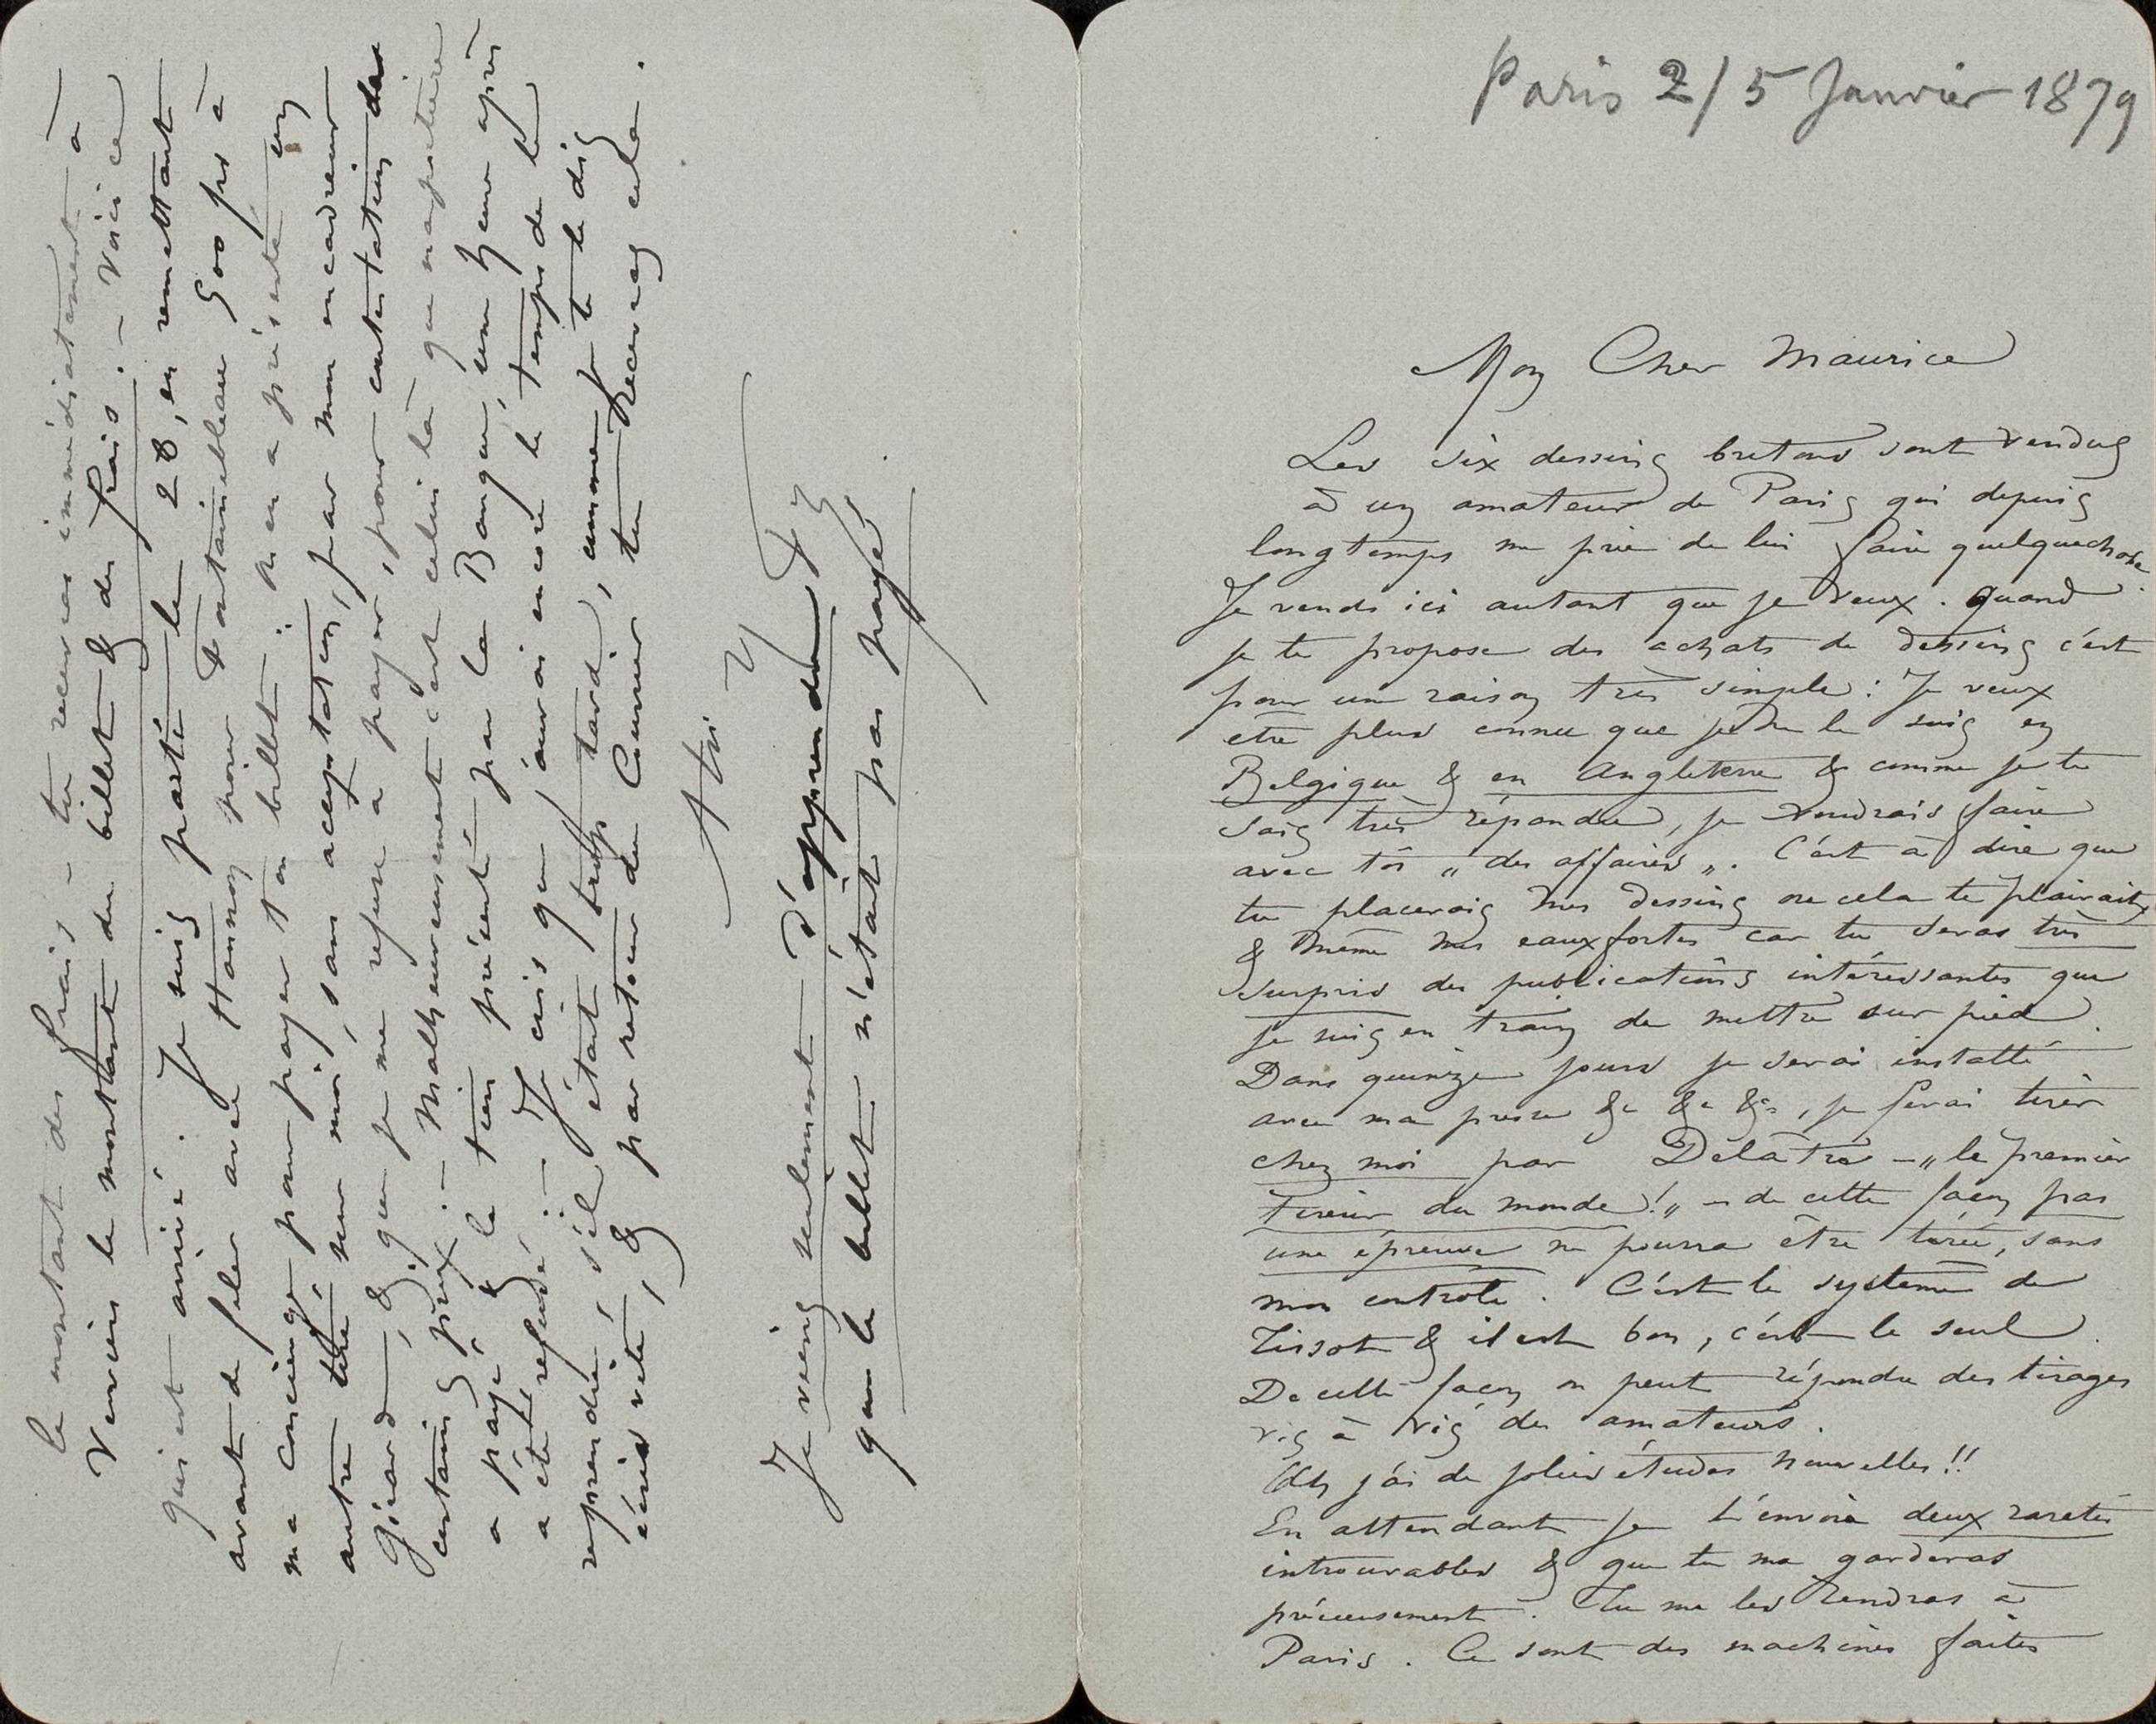 Paris 2/5 Janvier 1879
Mon Cher Maurice
Les six dessins bretons sont vendus
à un amateur de Paris qui depuis
longtemps me prie de lui faire quelquechose.
Je vends ici autant que je veux. Quand
je te propose des achats de dessins c'est
pour une raison très simple : Je veux
être plus connu que je ne le suis en
Belgique & en Angleterre & comme je te
sais très répandu, je voudrais faire
avec toi „ des affaires „. C'est à dire que
tu placerais mes dessins où cela te plairait,
& même mes eauxfortes car tu seras très
surpris des publications intéressantes que
je suis en train de mettre sur pied.
Dans quinze jours je serai installé
avec ma presse &c &c &c, je ferai tirer
chez moi par Delâtre – „ le premier
tireur du monde ! „ – de cette façon pas
une épreuve ne pourra être tirée, sans
mon contrôle. C'est le système de
Tissot & il est bon, c'est le seul.
De cette façon on peut répondre des tirages
vis à vis des amateurs.
Oh j'ai de jolies études nouvelles !!
En attendant je t'envoie deux raretés
introuvables & que tu me garderas
précieusement. Tu me les rendras à
Paris. Ce sont des machines faites
le montant des frais – tu recevras immédiatement à
Verviers le montant du billet & des frais. – Voici ce
qui est arrivé. Je suis parti le 28, en remettant
avant de filer avec Hannon pour Fontainebleau 500 frs à
ma concierge pour payer ton billet : on en a présenté un
autre tiré sur moi, sans acceptation, par mon encadreur
Girard, & que je me refuse à payer, pour contestation de
certains prix. – Malheureusement c'est celui là que ma portière
a payé & le tien présenté par la Banque, une heure après
a été refusé. – Je crois que j'aurai encore le temps de le
reprendre, s'il était trop tard, comme je te le dis
écris vite, & par retour du Courrier, tu recevras cela.
A toi
Fy
Je viens seulement d'apprendre
que le billet n'était pas payé.